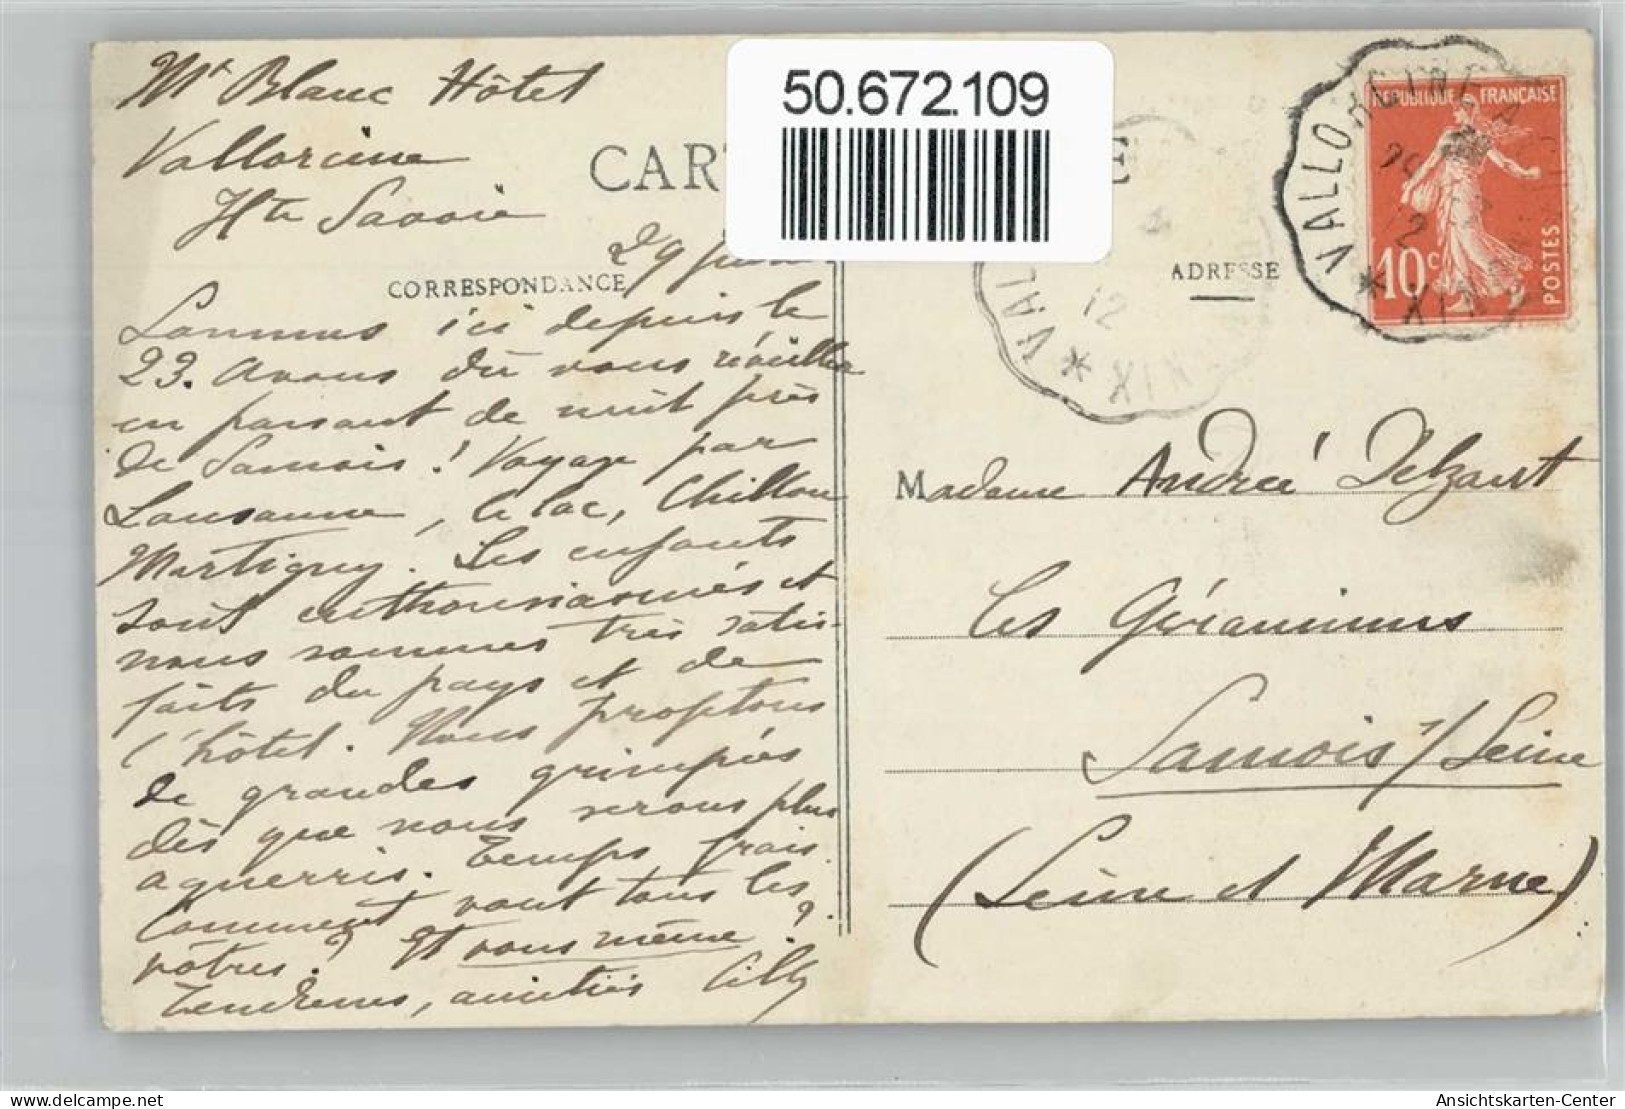 Mt Blanc Hôtel
Vallorcine
Hte Savoie
29
50.672.109
CAR
E
CORRESPONDANCE
ADRESSE
Sommes ici depuis le
23. Avons dû vous réveiller
en passant de nuit près
de Samois! Voyage par
Lausanne, le lac, Chillon
Martigny. Les enfants
sont enthousiasmés et
nous sommes très satis-
faits du pays et de
l'hôtel. Nous projetons
de grandes grimpées
dès que nous serons plus
aguerris. Temps frais.
Comment vont tous les
vôtres? Et vous même?
Tendresses, amitiés
REPUBLIQUE FRANÇAISE
10c
POSTES
VALLO
12
XIX
VAL
12
XIX
Madame Andrée Delzant
Les Géraniums
Samois s/Seine
(Seine et Marne)
https://www.delcampe.net
Ansichtskarten-Center